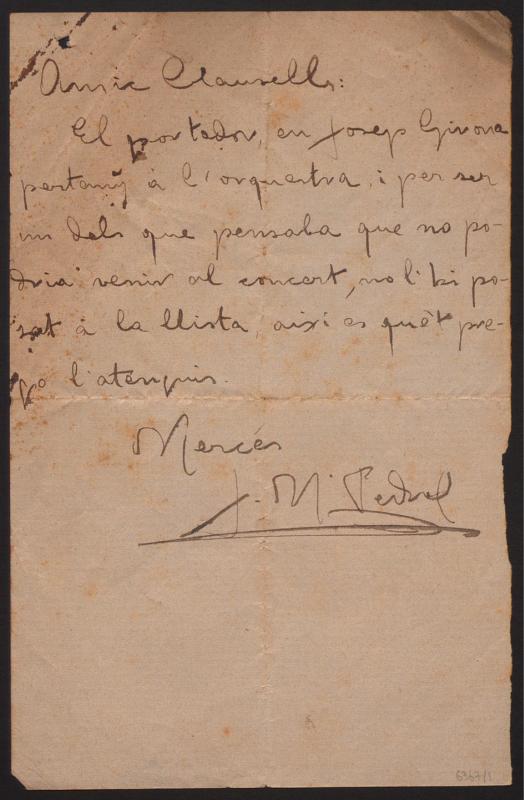 Amic Clausells:
El portador, en Josep Girona
pertany à l'orquestra, i per ser
un dels que pensaba que no po-
dria venir al concert, no l'hi po-
sat à la llista, així es què't pre-
go l'atenguis.
Mercés
J. Mª Pedrel
6367/1